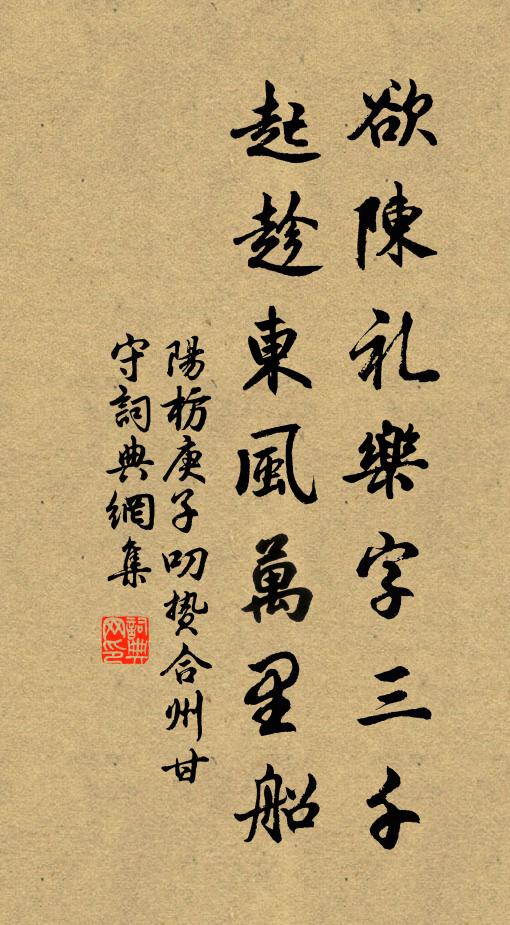 欲陳礼樂字三千
起趁東風萬里船
陽枋庚子叨贄合州甘
守詞典網集
詞典网印